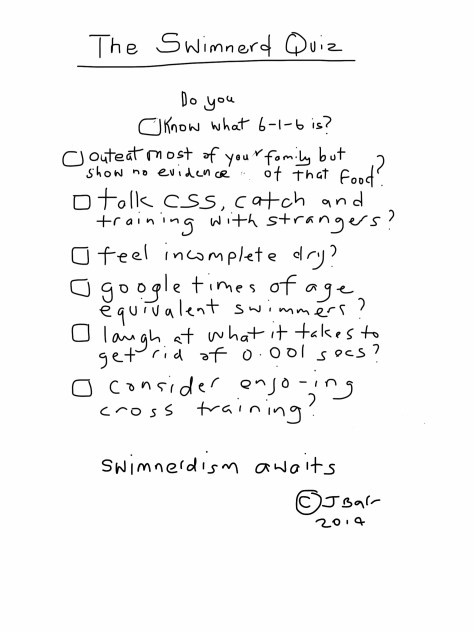 The Swimnerd Quiz
Do you
Know what 6-1-6 is?
outeat most of your family but
show no evidence of that food?
talk CSS, catch and
training with strangers?
feel incomplete dry?
google times of age
equivalent swimmers?
laugh at what it takes to
get rid of 0.001 secs?
consider enjo-ing
cross training?
swimnerdism awaits
© J Barr
2014